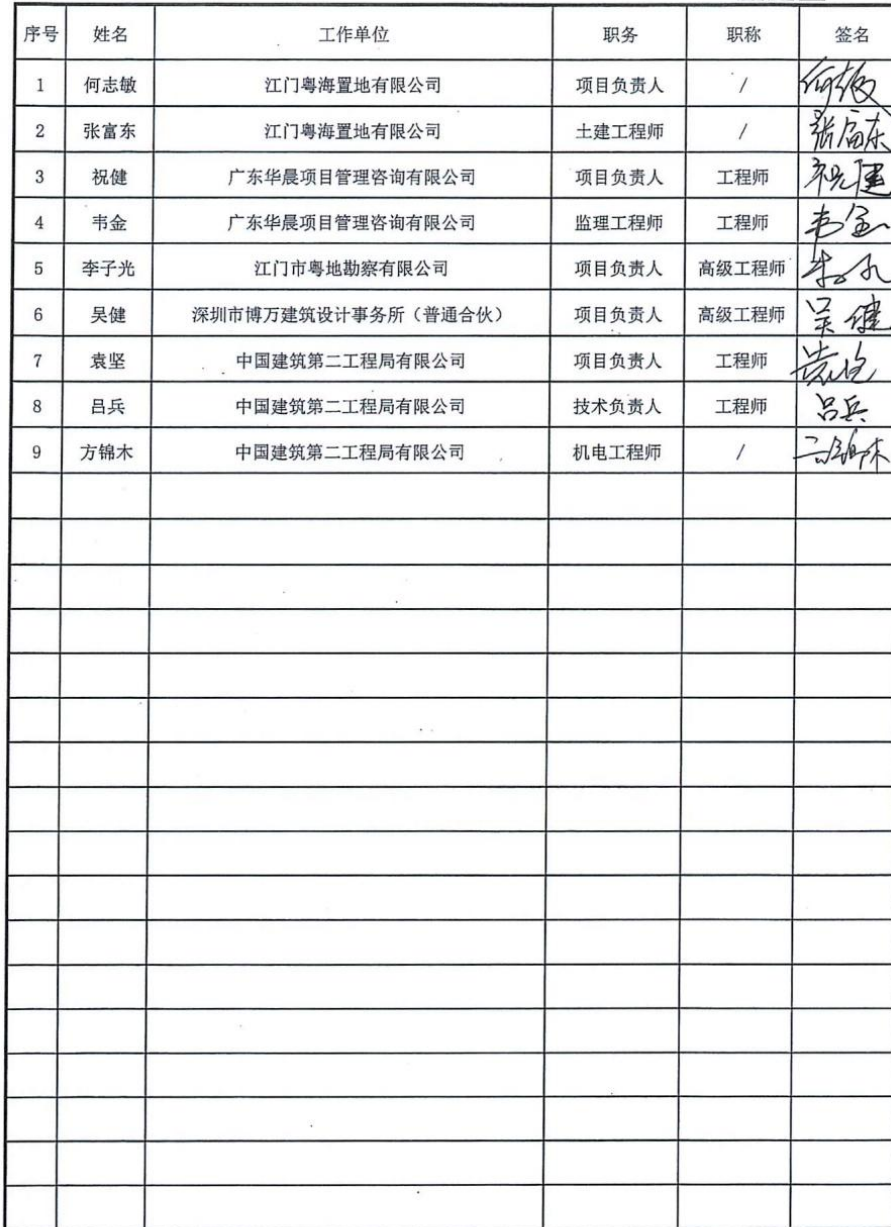 序号 姓名 工作单位 职务 职称 签名
1 何志敏 江门粤海置地有限公司 项目负责人 / 何志敏
2 张富东 江门粤海置地有限公司 土建工程师 / 张富东
3 祝健 广东华晨项目管理咨询有限公司 项目负责人 工程师 祝健
4 韦金 广东华晨项目管理咨询有限公司 监理工程师 工程师 韦金
5 李子光 江门市粤地勘察有限公司 项目负责人 高级工程师
6 吴健 深圳市博万建筑设计事务所（普通合伙） 项目负责人 高级工程师 吴健
7 袁坚 中国建筑第二工程局有限公司 项目负责人 工程师
8 吕兵 中国建筑第二工程局有限公司 技术负责人 工程师 吕兵
9 方锦木 中国建筑第二工程局有限公司 机电工程师 / 方锦木